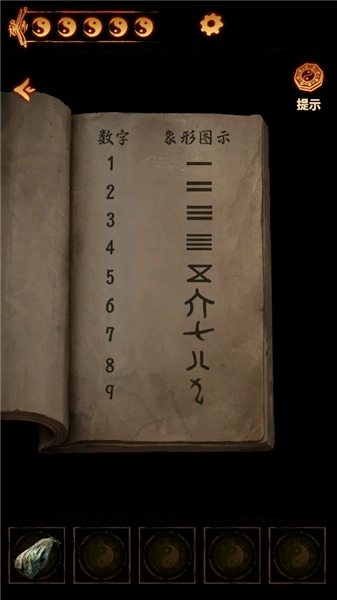 提示
数字 象形图示
1 一
2 二
3 三
4 亖
5
6
7 七
8 八
9